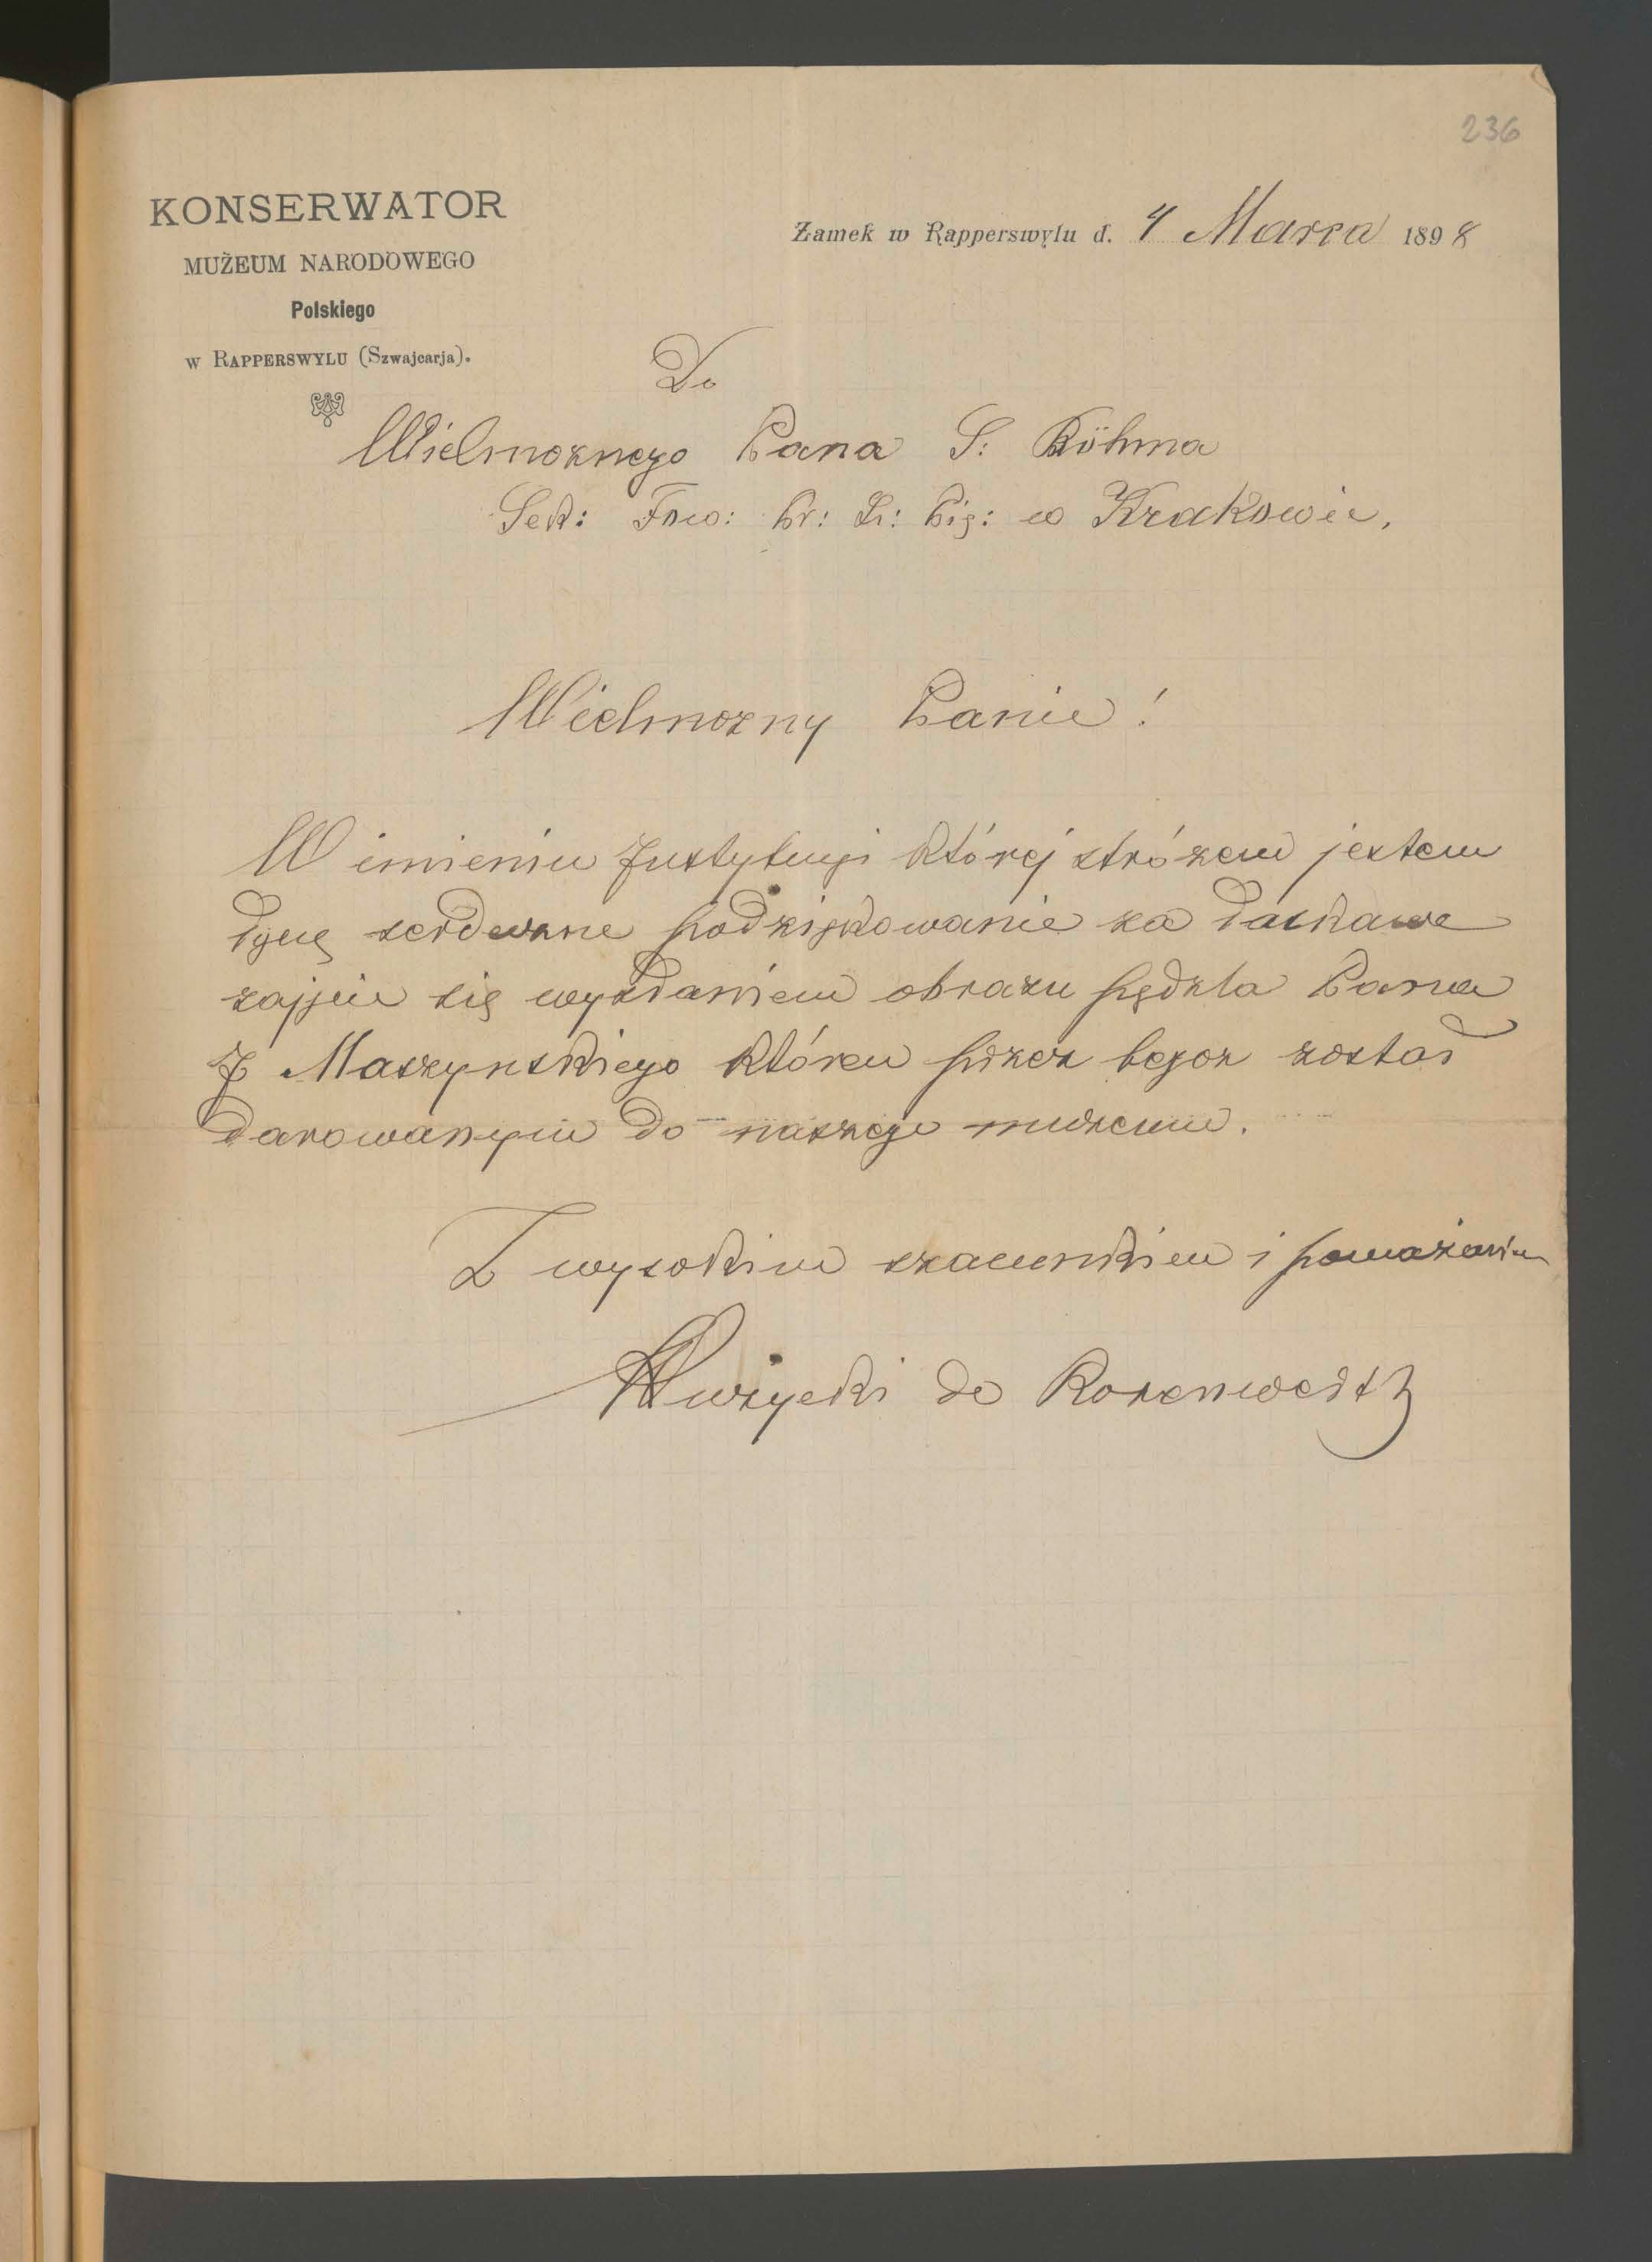 236
KONSERWATOR
MUŻEUM NARODOWEGO
Polskiego
w RAPPERSWYLU (Szwajcarja).
Zamek w Rapperswylu d. 4 Marca 1898
Do
Wielmoznego Pana S: Böhma
Sek: Tow: Pr: Sz: Pię: w Krakowie,
Wielmozny Panie!
W imieniu Instytucyi której strózem jestem
serdeczne podziękowanie za łaskawe
zajęcie się wysłaniem obrazu pędzla Pana
J Maszynskiego który przez tegoz został
darowanym do naszego muzeum.
Z wysokim szacunkiem i poważaniem
Rużycki de Rosenwerth